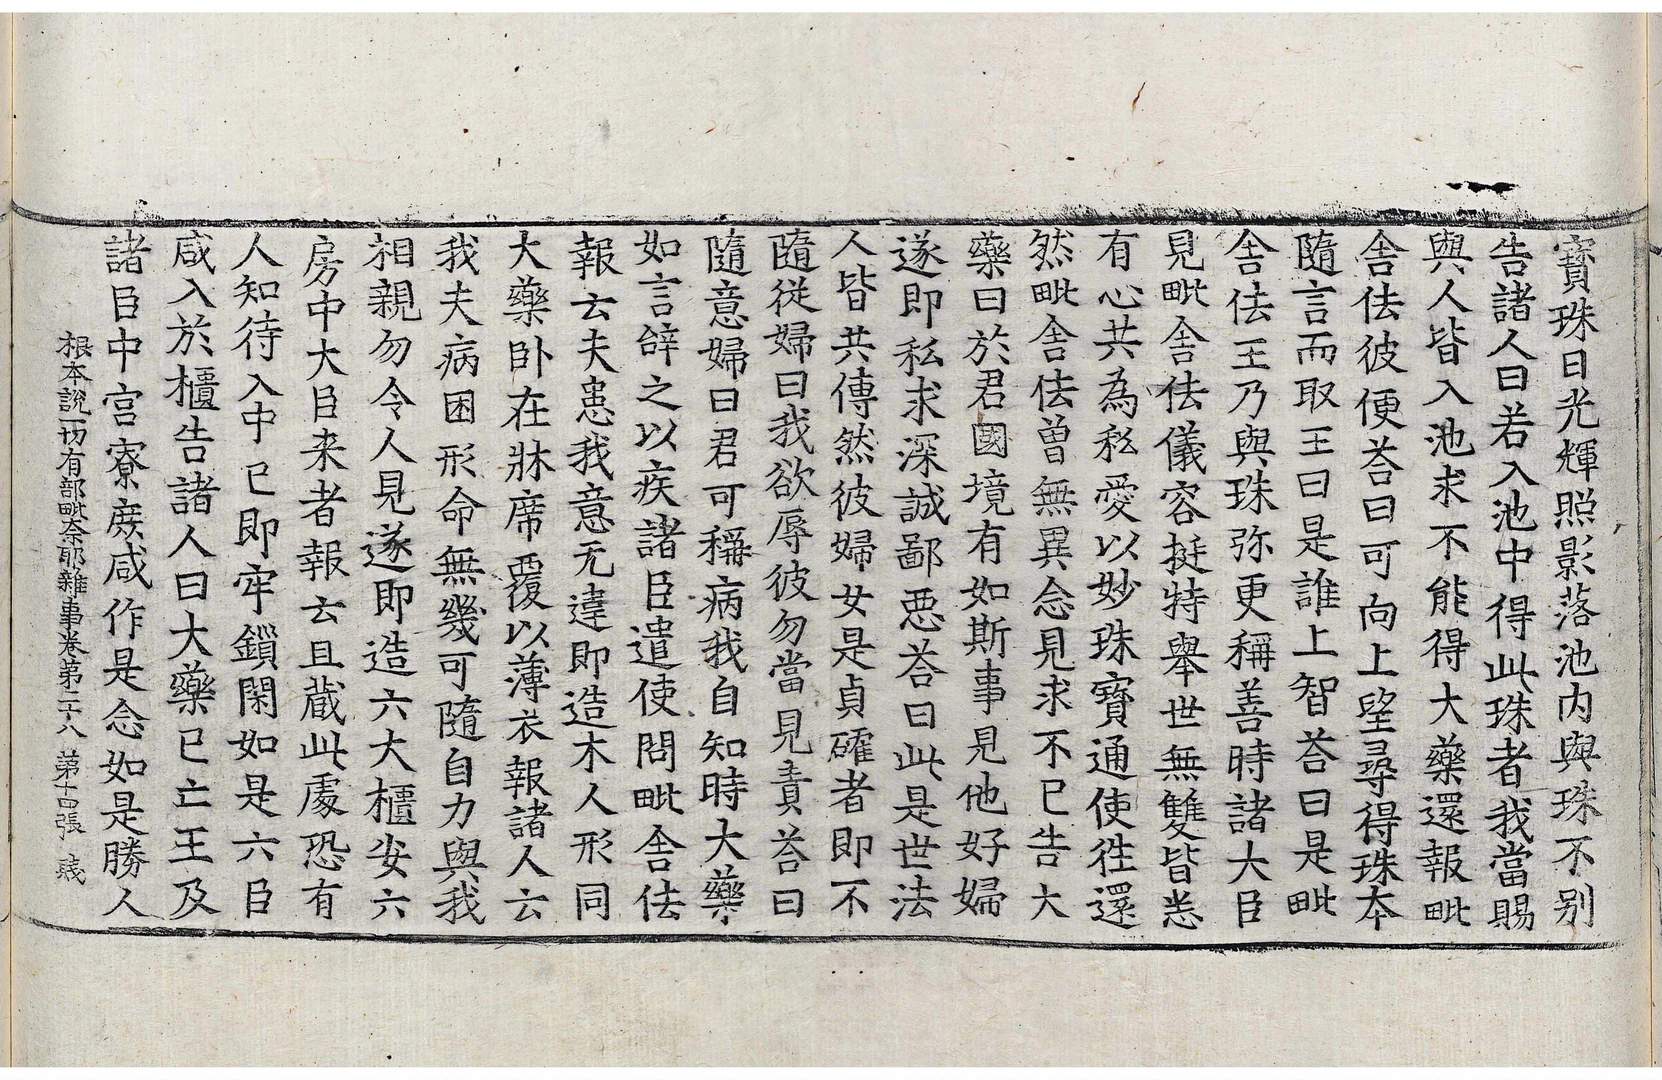 寶珠日光輝照影落池内與珠不別
告諸人曰若入池中得此珠者我當賜
與人皆入池求不能得大藥還報毗
舍佉彼便荅曰可向上望尋得珠本
隨言而取王曰是誰上智荅曰是毗
舍佉王乃與珠弥更稱善時諸大臣
見毗舍佉儀容挺特舉世無雙皆悉
有心共為私愛以妙珠寶通使往還
然毗舍佉曾無異念見求不已告大
藥曰於君國境有如斯事見他好婦
遂即私求深誠鄙惡荅曰此是世法
人皆共傳然彼婦女是貞確者即不
隨從婦曰我欲辱彼勿當見責荅曰
隨意婦曰君可稱病我自知時大藥
如言辝之以疾諸臣遣使問毗舍佉
報云夫患我意无違即造木人形同
大藥卧在牀席覆以薄衣報諸人云
我夫病困形命無幾可隨自力與我
相親勿令人見遂即造六大櫃安六
房中大臣来者報云且蔵此處恐有
人知待入中已即牢鎻閑如是六臣
咸入於櫃告諸人曰大藥已亡王及
諸臣中宫寮庶咸作是念如是勝人
根本說一切有部毗奈耶雜事卷第二十八 第十四張  蔑